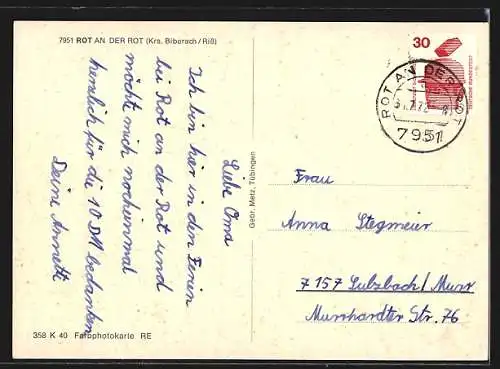 7951 ROT AN DER ROT (Krs. Biberach/Riß)
Liebe Oma
Ich bin hier in den Ferien
bei Rot an der Rot und
möchte mich nocheinmal
herzlich für die 10 DM bedanken
Deine Annette
358 K 40 Farbphotokarte RE
Gebr. Metz, Tübingen
30
DEUTSCHE BUNDESPOST
ROT AN DER ROT
7951
Frau
Anna Stegmeier
7157 Sulzbach/Murr
Murrhardter Str. 76